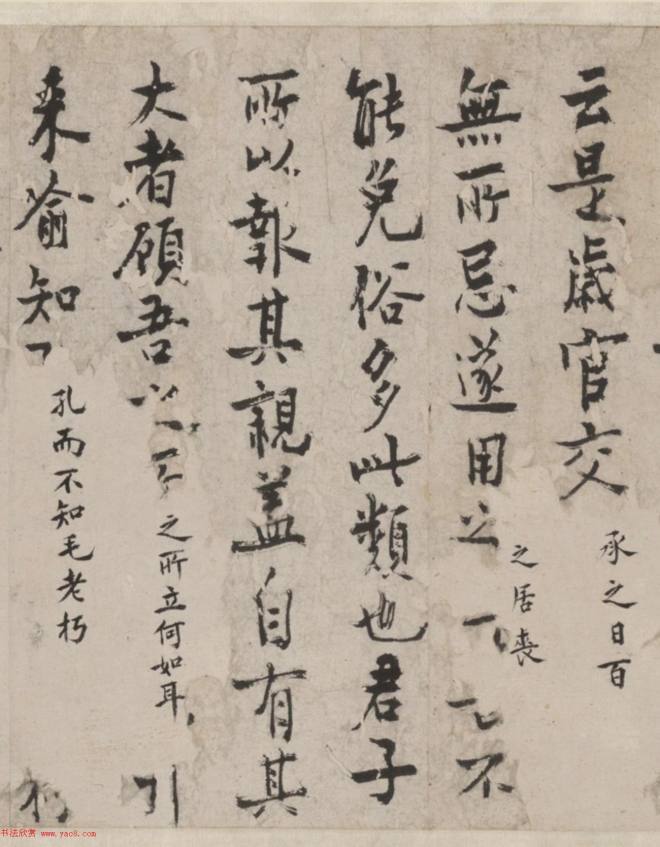 云是歲官交
承之日百
無所忌遂用之
之居喪
不
能免俗多此類也君子
所以報其親蓋自有其
大者顧吾
之所立何如耳
引
来喻知
孔而不知毛老朽
书法欣赏 www.yac8.com